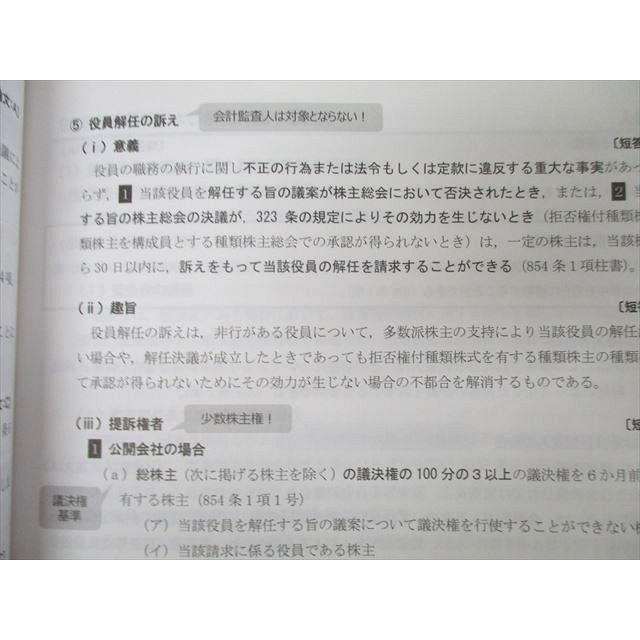 ⑤ 役員解任の訴え
会計監査人は対象とならない！
(ⅰ) 意義
〔短答
役員の職務の執行に関し不正の行為または法令もしくは定款に違反する重大な事実があっ
らず，1 当該役員を解任する旨の議案が株主総会において否決されたとき，または，2 当
する旨の株主総会の決議が，323 条の規定によりその効力を生じないとき（拒否権付種類株
類株主を構成員とする種類株主総会での承認が得られないとき）は，一定の株主は，当該株
ら 30 日以内に，訴えをもって当該役員の解任を請求することができる（854 条１項柱書）。
(ⅱ) 趣旨
〔短答
役員解任の訴えは，非行がある役員について，多数派株主の支持により当該役員の解任
い場合や，解任決議が成立したときであっても拒否権付種類株式を有する種類株主の種類
て承認が得られないためにその効力が生じない場合の不都合を解消するものである。
(ⅲ) 提訴権者
少数株主権！
〔短
1 公開会社の場合
(ａ) 総株主（次に掲げる株主を除く）の議決権の 100 分の３以上の議決権を６か月前
議決権
基準
有する株主（854 条１項１号）
(ア) 当該役員を解任する旨の議案について議決権を行使することができない
(イ) 当該請求に係る役員である株主